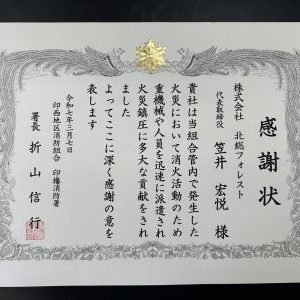 感謝状
株式会社 北総フォレスト
代表取締役 笠井 宏悦 様
貴社は当組合管内で発生した
火災において消火活動のため
重機械や人員を迅速に派遣され
火災鎮圧に多大な貢献をされ
ました
よってここに深く感謝の意を
表します
令和七年三月七日
印西地区消防組合 印西消防署
署長 折山 信行